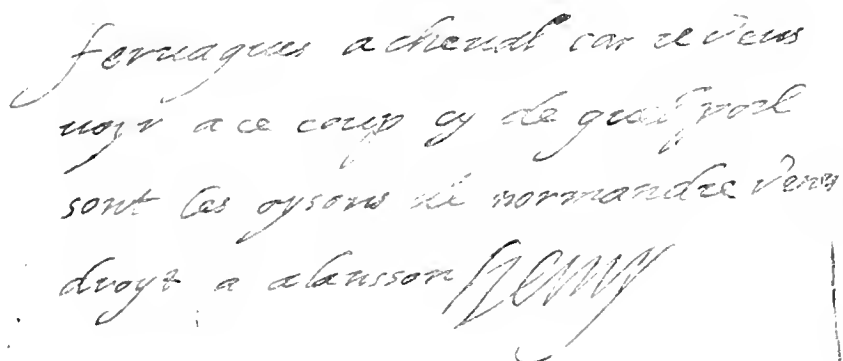 fervaques a cheval car ie veus
voyr a ce coup cy de quel poil
sont les oysons de normandie venes
droyt a alansson Henry